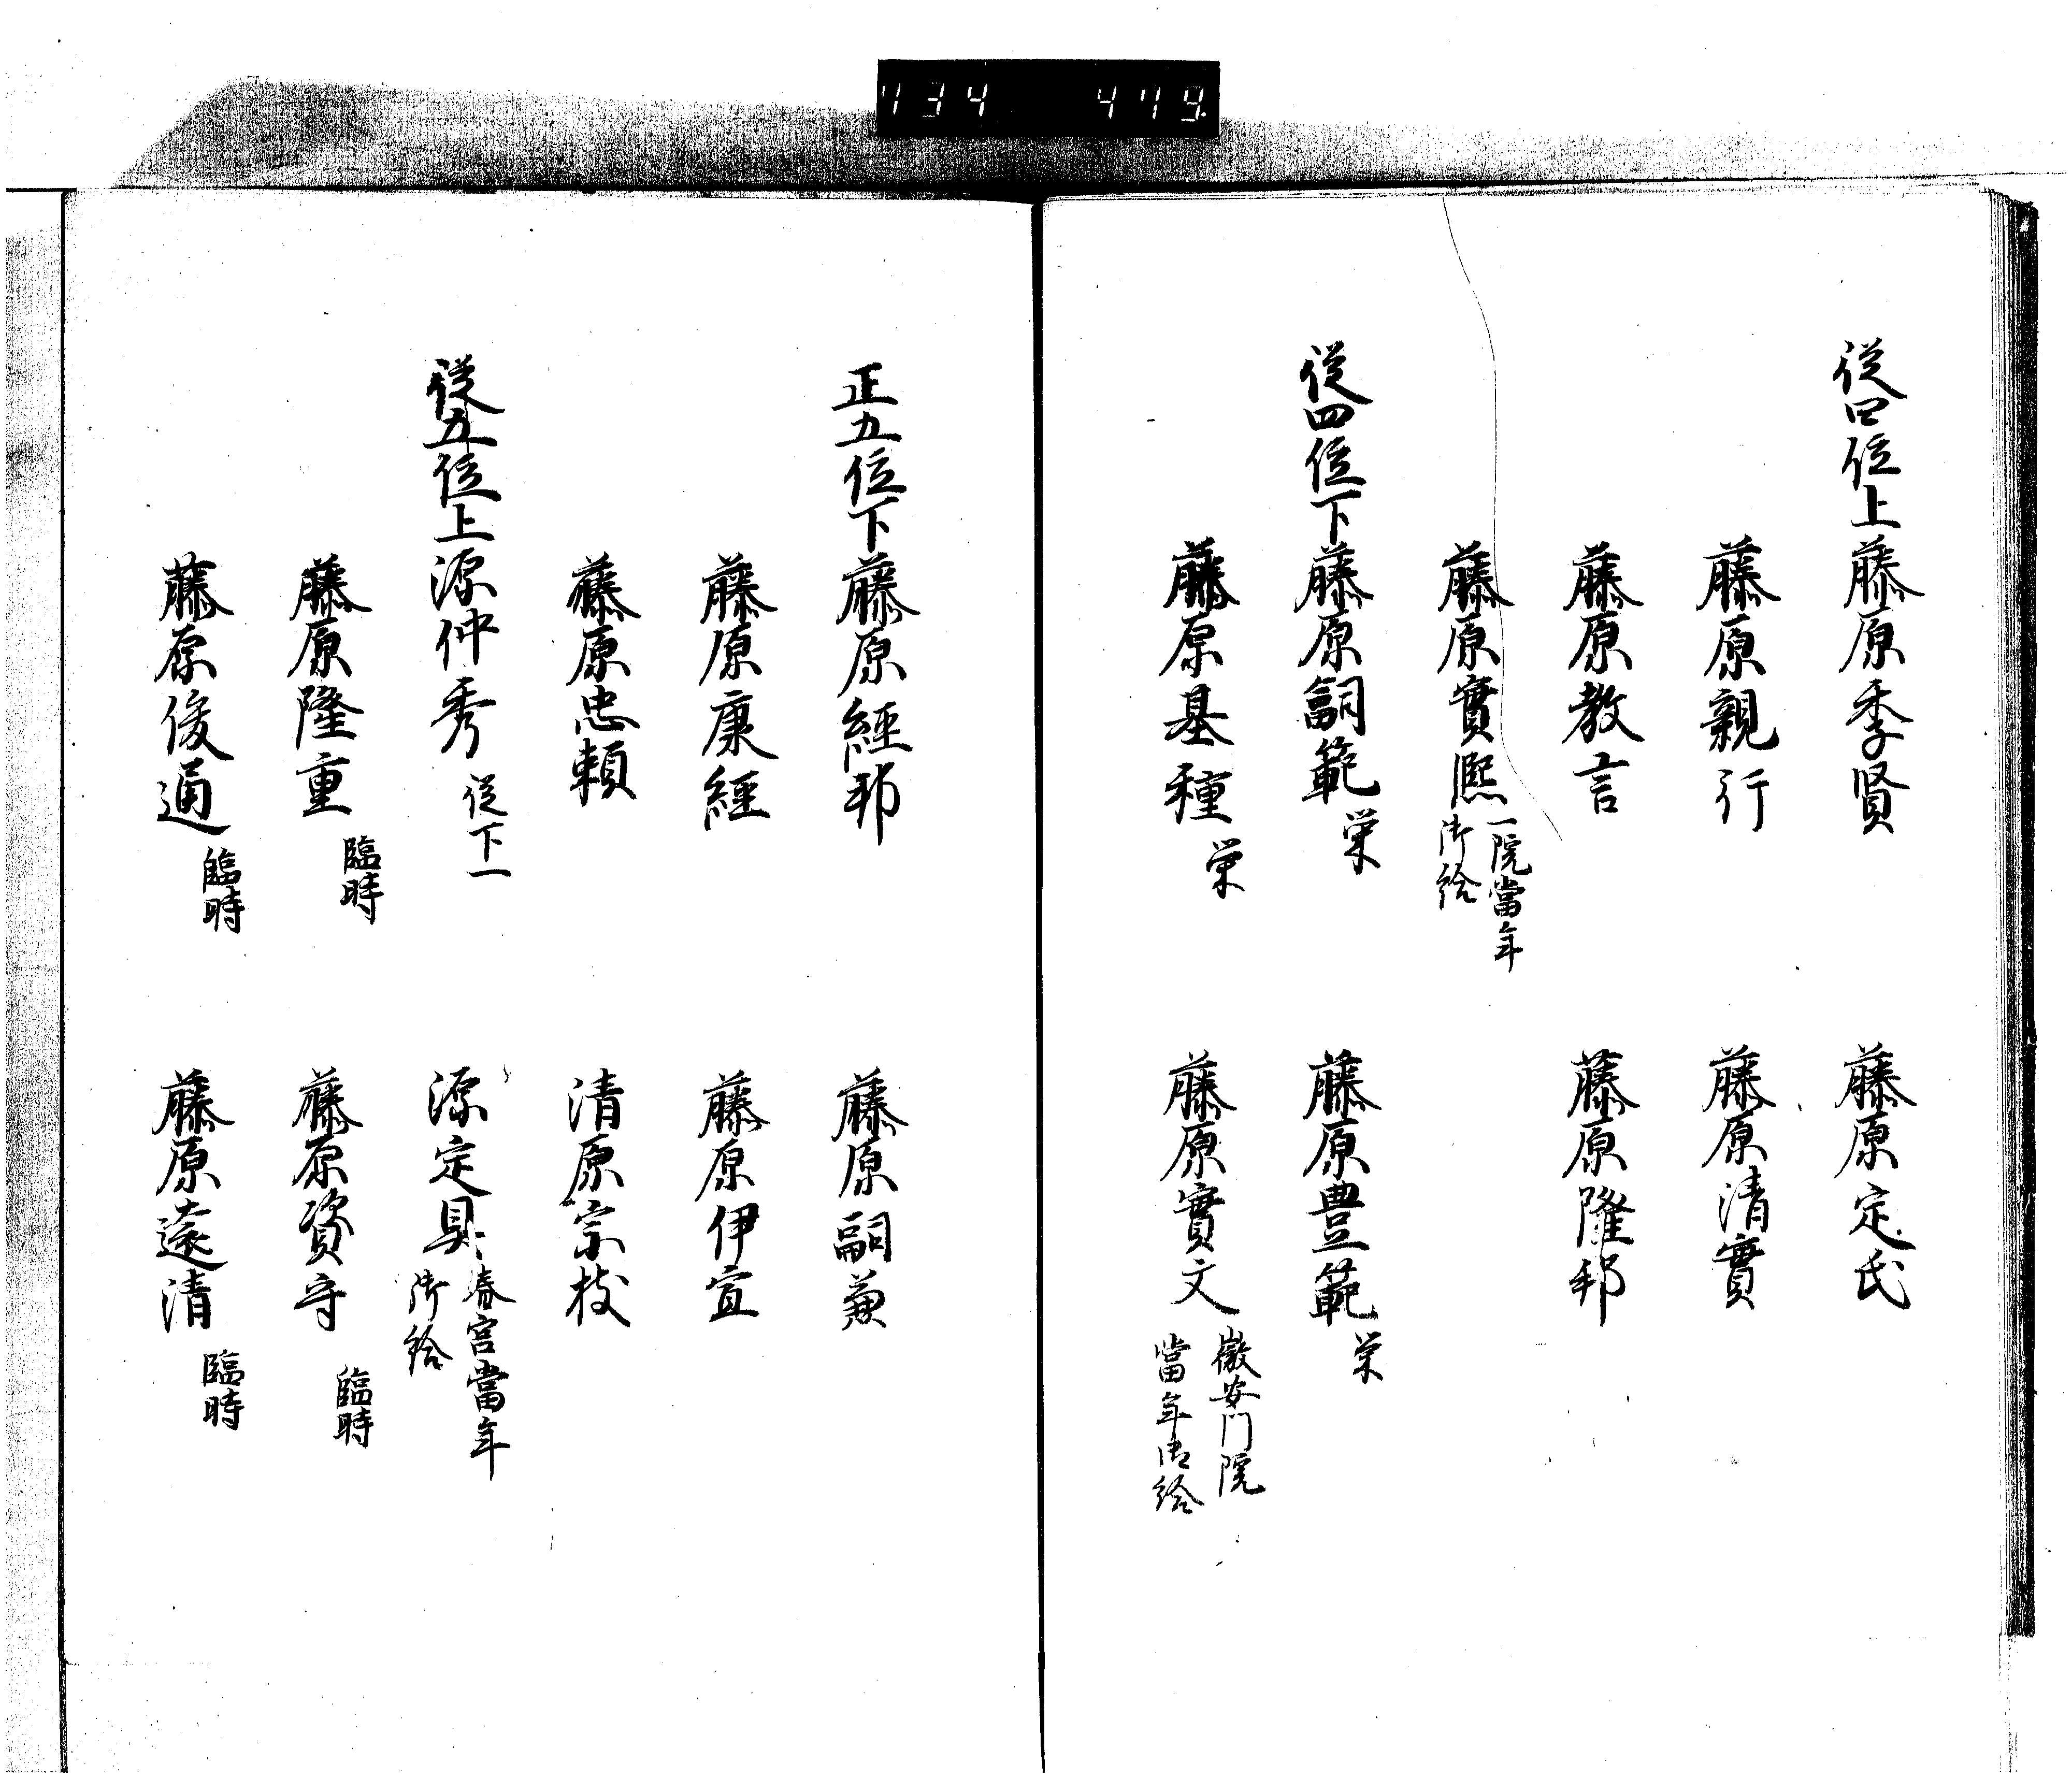 134 479
從四位上藤原季賢　藤原定氏
藤原親行　藤原清實
藤原教言　藤原隆邦
藤原實熈一院當年御給
從四位下藤原嗣範栄　藤原豊範栄
藤原基種栄　藤原實文徽安門院當年御給
正五位下藤原經邦　藤原嗣兼
藤原康經　藤原伊宣
藤原忠頼　清原宗枝
從五位上源仲秀從下一　源定具春宮當年御給
藤原隆重臨時　藤原資守臨時
藤原俊通臨時　藤原遠清臨時